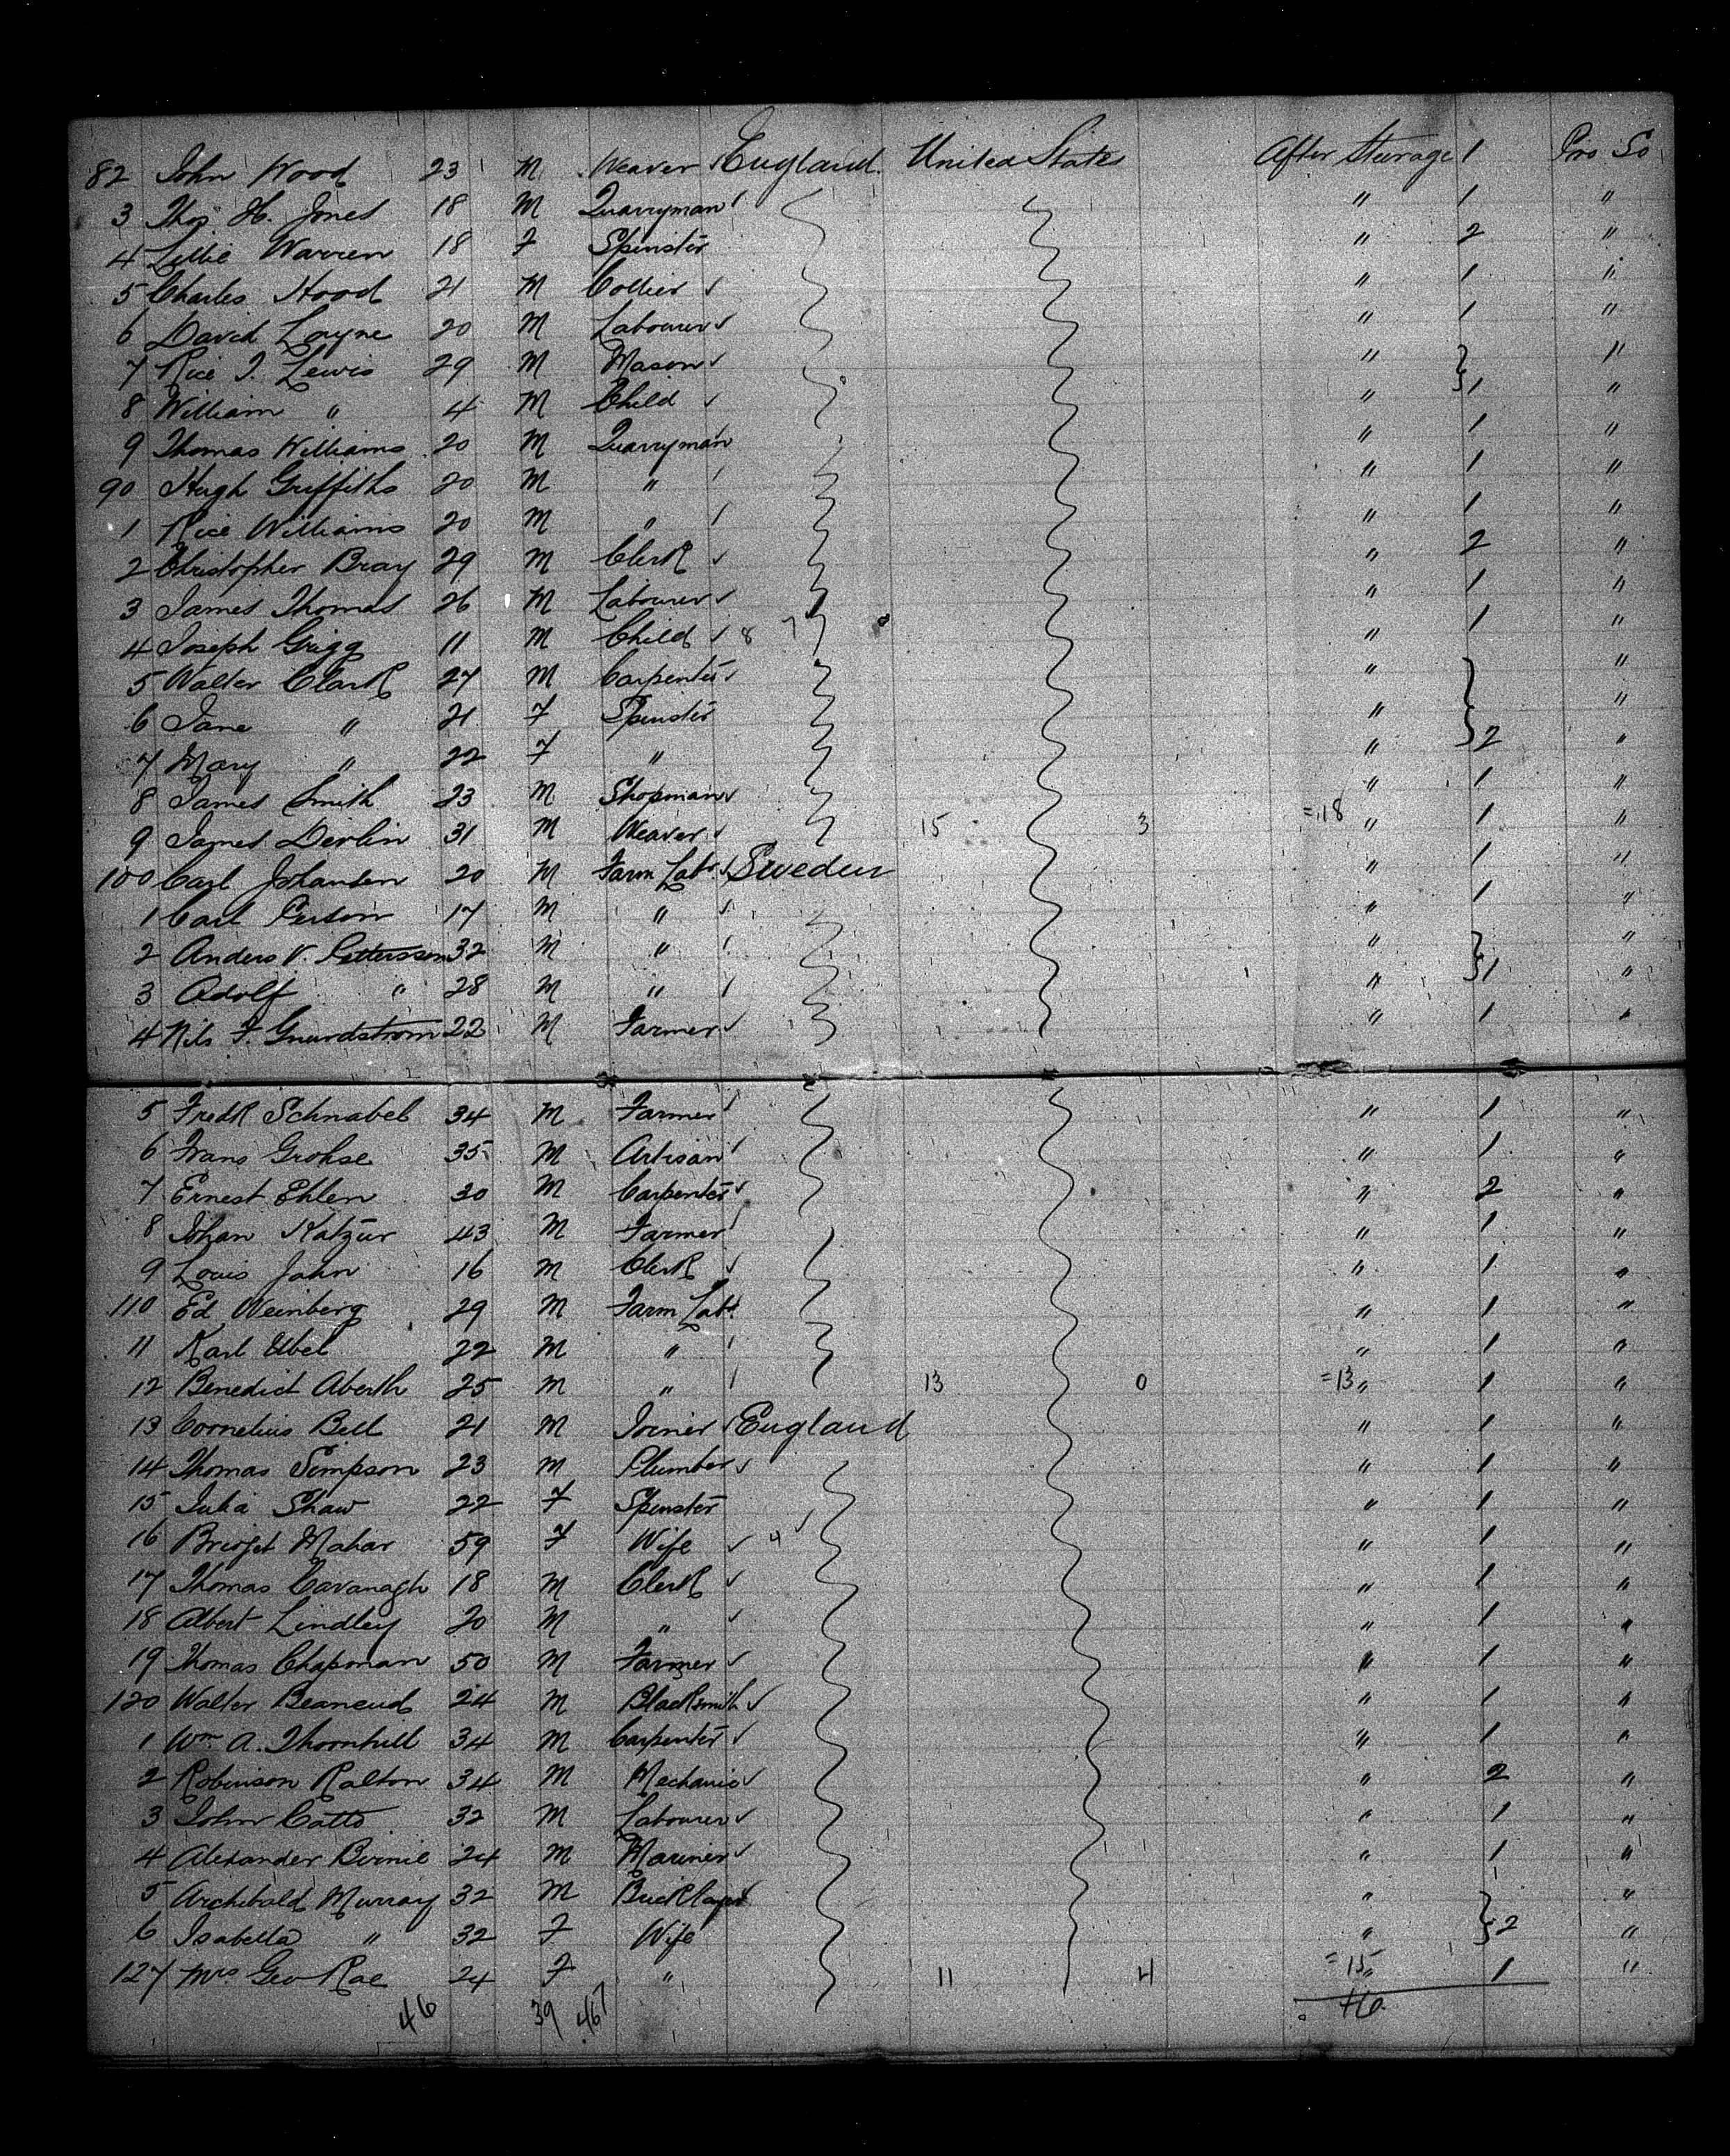 82 John Wood 23 M Weaver England United States After Steerage 1 Pro So
3 Thos. H. Jones 18 M Quarryman " 1 "
4 Lillie Warren 18 F Spinster " 2 "
5 Charles Hood 21 M Collier " 1 "
6 David Layne 20 M Labourer " 1 "
7 Rice J. Lewis 29 M Mason " "
8 William " 4 M Child " 1 "
9 Thomas Williams 20 M Quarryman " 1 "
90 Hugh Griffiths 20 M " " 1 "
1 Rice Williams 20 M " " 1 "
2 Christopher Bray 29 M Clerk " 2 "
3 James Thomas 26 M Labourer " 1 "
4 Joseph Grigg 11 M Child 8 7 " 1 "
5 Walter Clark 27 M Carpenter " "
6 Jane " 21 F Spinster " "
7 Mary " 22 F " " 2 "
8 James Smith 23 M Shopman " 1 "
9 James Devlin 31 M Weaver 15 3 =18 " 1 "
100 Carl Johansen 20 M Farm Labr. Sweden " 1 "
1 Carl Person 17 M " " 1 "
2 Anders V. Pettersson 32 M " " "
3 Adolf " 28 M " " 1 "
4 Nils F. 22 M Farmer " 1 "
5 Fredk Schnabel 34 M Farmer " 1 "
6 Frans Grohse 35 M Artisan " 1 "
7 Ernest Ehlen 30 M Carpenter " 2 "
8 Johan Katzur 43 M Farmer " 1 "
9 Louis Jahn 16 M Clerk " 1 "
110 Ed Weinberg 29 M Farm Labr " 1 "
11 Karl Ubel 22 M " " 1 "
12 Benedict Aberth 25 M " 13 0 =13 " 1 "
13 Cornelius Bell 21 M Joiner England " 1 "
14 Thomas Simpson 23 M Plumber " 1 "
15 Julia Shaw 22 F Spinster " 1 "
16 Bridget Mahar 59 F Wife 4 " 1 "
17 Thomas Cavanagh 18 M Clerk " 1 "
18 Albert Lindley 20 M " " 1 "
19 Thomas Chapman 50 M Farmer " 1 "
120 Walter 24 M Blacksmith " 1 "
1 Wm A. Thornhill 34 M Carpenter " 1 "
2 Robinson Ralton 34 M Mechanic " 2 "
3 John Catto 32 M Labourer " 1 "
4 Alexander Birnie 24 M Mariner " 1 "
5 Archibald Murray 32 M Bricklayer " "
6 Isabella " 32 F Wife " 2 "
127 Mrs Geo Rae 24 F " 11 4 =15 " 1 "
46 39 467 46